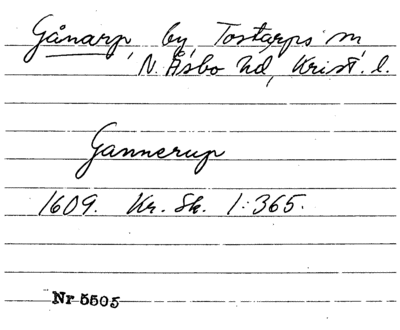 Gånarp, by, Tostarps sn,
N. Åsbo hd, Krist. l.
Gannerup
1609. Kr. Sk. 1:365.
Nr 5505